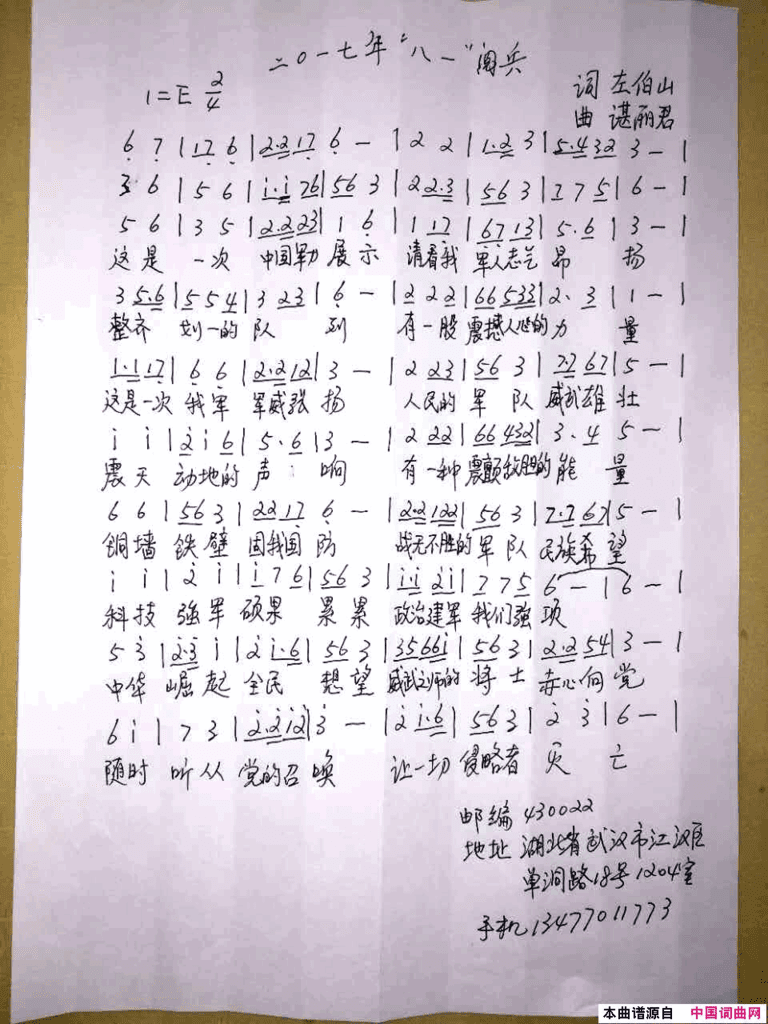 二〇一七年“八一”阅兵
1=E 2/4
词 左伯山
曲 谌丽君
6 7 | 17 6 | 2·2 17 | 6 - | 2 2 | 1·2 3 | 5·4 32 | 3 - |
3 6 | 5 6 | i·i 76 | 56 3 | 22·3 | 56 3 | 7 7 5 | 6 - |
5 6 | 3 5 | 2·2 23 | 1 6 | 1 17 | 67 13 | 5·6 | 3 - |
这是 一次 中国军力 展示 请看我 军人志气 昂 扬
3 5·6 | 5 5 4 | 3 23 | 6 - | 2 2 2 | 66 533 | 2· 3 | 1 - |
整齐 划一的 队 列 有一股 震撼人心的 力 量
1·1 17 | 6 6 | 2·2 12 | 3 - | 2 23 | 56 3 | 7·7 67 | 5 - |
这是一次 我军 军威张 扬 人民的 军 队 威武雄 壮
i i | 2 i 6 | 5·6 | 3 - | 2 22 | 66 432 | 3·4 | 5 - |
震天 动地的 声 响 有一种 震颤敌胆的 能 量
6 6 | 56 3 | 22 17 | 6 - | 2·2 122 | 56 3 | 7·7 67 | 5 - |
铜墙 铁壁 固我国 防 战无不胜的 军 队 民族希 望
i i | 2 i | i 7 6 | 56 3 | i·i 2i | 7 7 5 | 6 - | 6 - |
科技 强军 硕果 累累 政治建军 我们强 项
5 3 | 2·3 i | 2 i·6 | 56 3 | 3566i | 56 3 | 2·2 54 | 3 - |
中华 崛起 全民 想望 威武之师的 将士 赤心向 党
6 i | 7 3 | 2·2 i2 | 3 - | 2 i·6 | 56 3 | 2 3 | 6 - |
随时 听从 党的召 唤 让一切 侵略者 灭 亡
邮编 430022
地址 湖北省武汉市江汉区
单洞路18号1204室
手机13477011773
本曲谱源自 中国词曲网